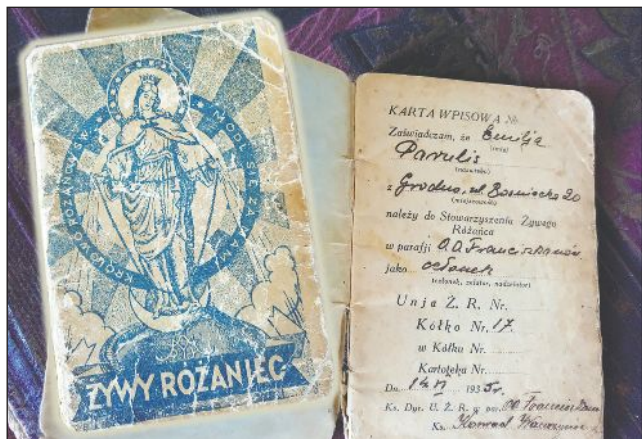 KRÓLOWO RÓŻAŃCA ŚW. MÓDL SIĘ ZA NAMI
ŻYWY RÓŻANIEC
KARTA WPISOWA №
Zaświadczam, że Emilja
(imię)
Parulis
(nazwisko)
z Grodna, ul. 20
(miejscowość)
należy do Stowarzyszenia Żywego
Różańca
w parafji O.O. Franciszkanów
jako członek
(członek, zelator, nadzelator)
Unja Ż. R. Nr.
Kółko Nr. 17.
w Kółku Nr.
Kartoteka Nr.
Dn. 14 VI 1935 r.
Ks. Dyr. U. Ż. R. w par. OO Franciszkanów
Ks. Konrad